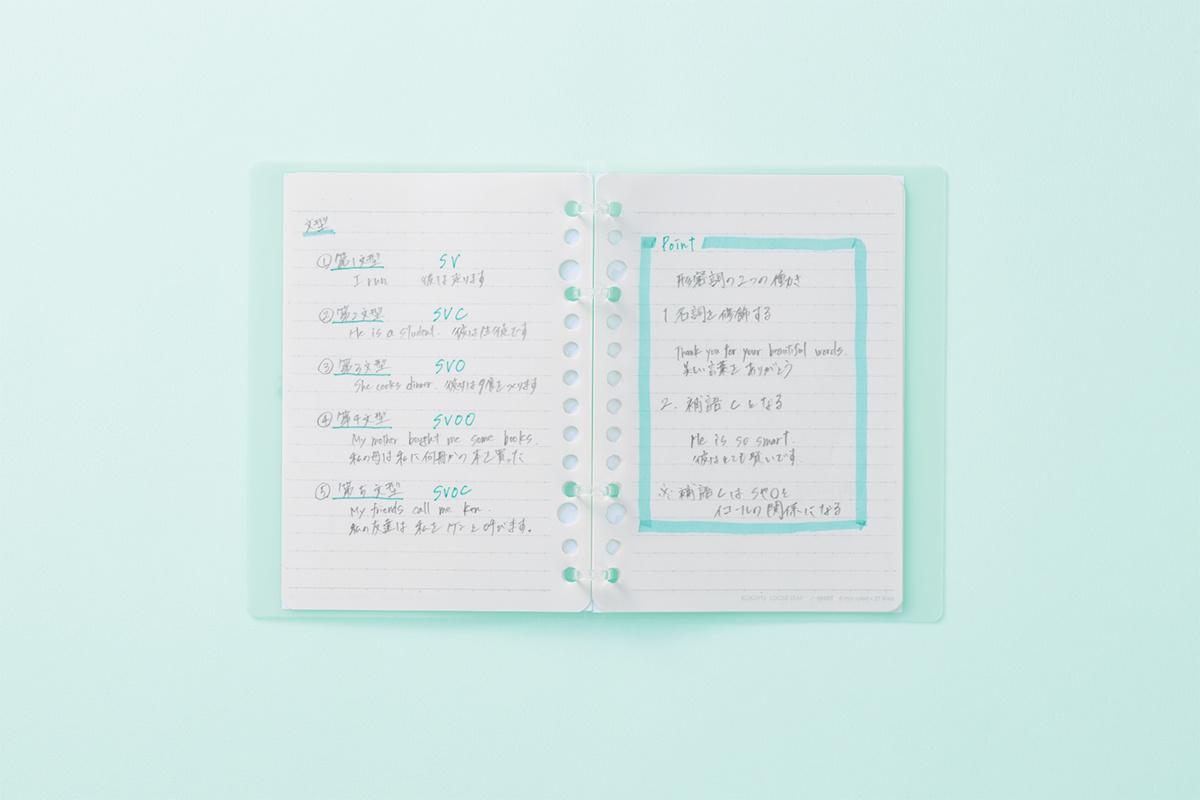 文型
① 第1文型 SV
I run 彼は走ります
② 第2文型 SVC
He is a student. 彼は生徒です
③ 第3文型 SVO
She cooks dinner. 彼女は夕食をつくります
④ 第4文型 SVOO
My mother bought me some books.
私の母は私に何冊かの本を買った
⑤ 第5文型 SVOC
My friends call me Ken.
私の友達は私をケンと呼びます。
Point
形容詞の2つの働き
1 名詞を修飾する
Thank you for your beautiful words.
美しい言葉をありがとう
2. 補語Cとなる
He is so smart.
彼はとても賢いです
※ 補語CはSやOと
イコールの関係になる
KOKUYO LOOSE-LEAF